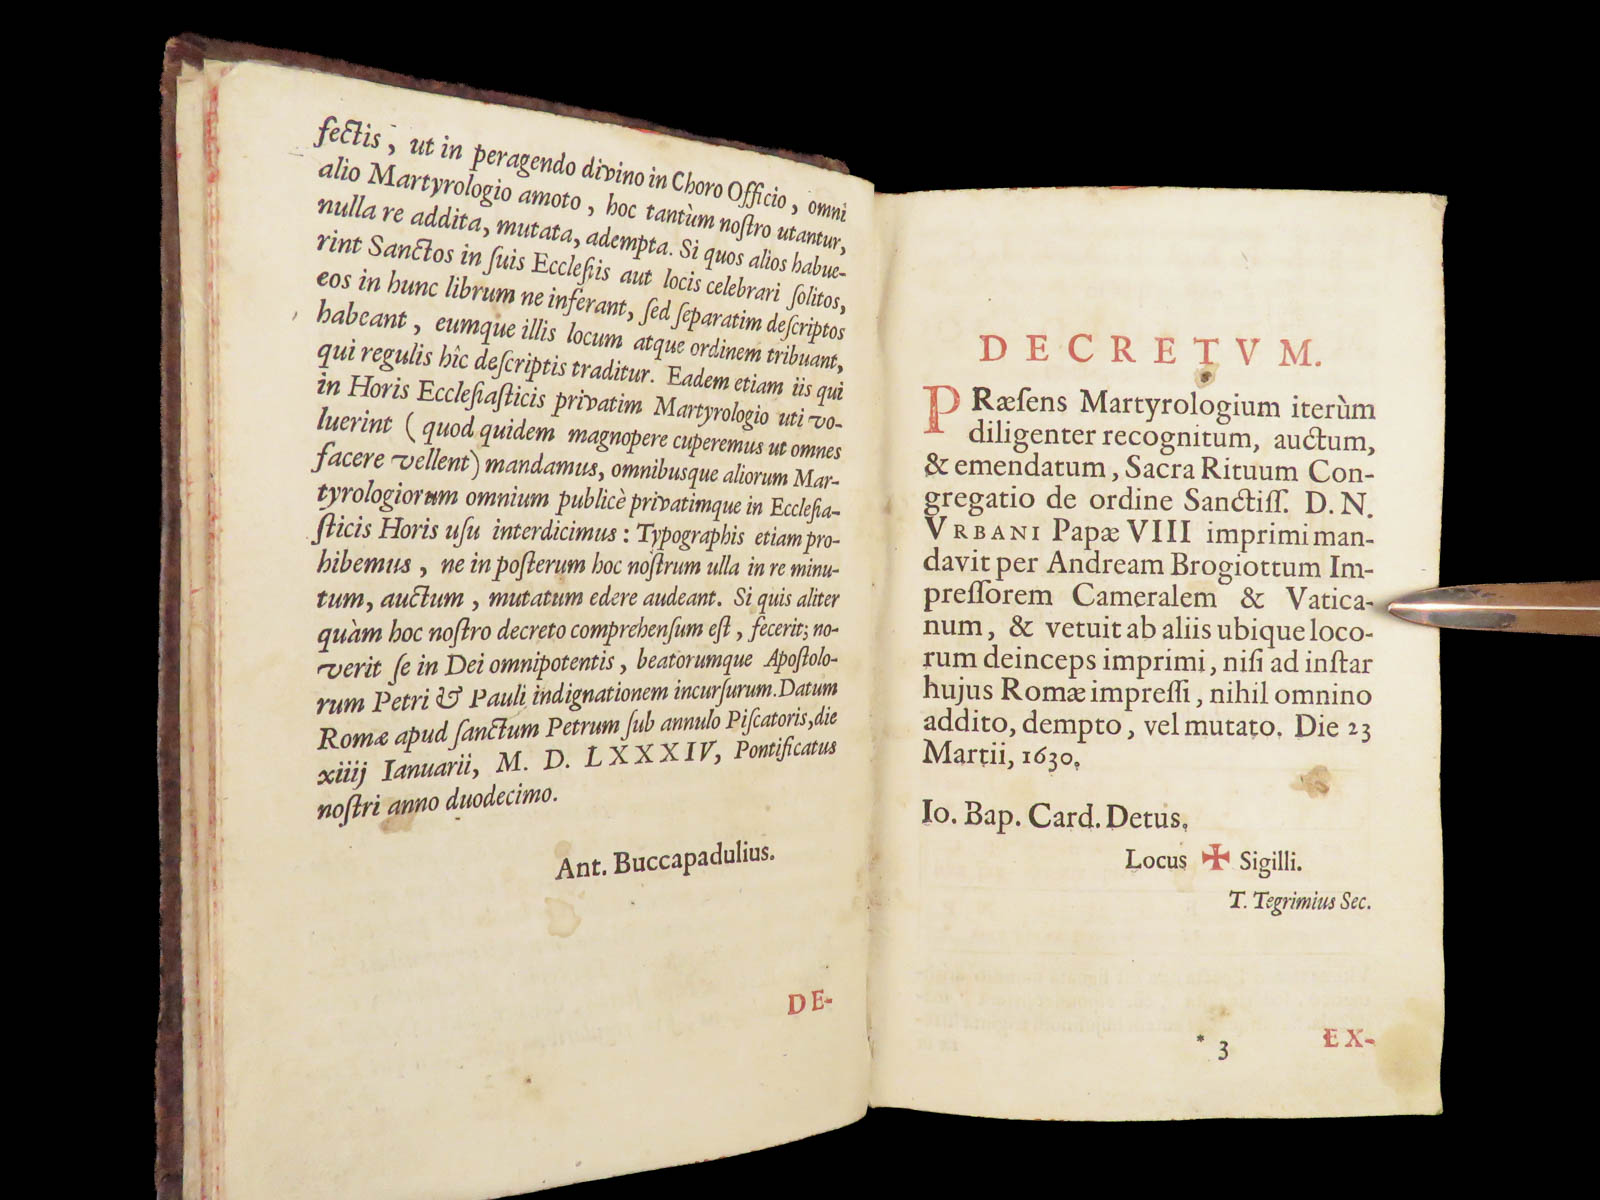 fectis, ut in peragendo divino in Choro Officio, omni
alio Martyrologio amoto, hoc tantùm noſtro utantur,
nulla re addita, mutata, adempta. Si quos alios habue-
rint Sanctos in ſuis Eccleſiis aut locis celebrari ſolitos,
eos in hunc librum ne inferant, ſed ſeparatim deſcriptos
habeant, eumque illis locum atque ordinem tribuant,
qui regulis hîc deſcriptis traditur. Eadem etiam iis qui
in Horis Eccleſiaſticis privatim Martyrologio uti vo-
luerint (quod quidem magnopere cuperemus ut omnes
facere vellent) mandamus, omnibusque aliorum Mar-
tyrologiorum omnium publicè privatimque in Eccleſia-
ſticis Horis uſu interdicimus: Typographis etiam pro-
hibemus, ne in poſterum hoc noſtrum ulla in re minu-
tum, auctum, mutatum edere audeant. Si quis aliter
quàm hoc noſtro decreto comprehenſum eſt, fecerit; no-
verit ſe in Dei omnipotentis, beatorumque Apoſtolo-
rum Petri & Pauli indignationem incurſurum. Datum
Romæ apud ſanctum Petrum ſub annulo Piſcatoris, die
xiiij Ianuarii, M. D. LXXXIV, Pontificatus
noſtri anno duodecimo.
Ant. Buccapadulius.
DE-
DECRETVM.
PRæſens Martyrologium iterùm
diligenter recognitum, auctum,
& emendatum, Sacra Rituum Con-
gregatio de ordine Sanctiſſ. D. N.
VRBANI Papæ VIII imprimi man-
davit per Andream Brogiottum Im-
preſſorem Cameralem & Vatica-
num, & vetuit ab aliis ubique loco-
rum deinceps imprimi, niſi ad inſtar
hujus Romæ impreſſi, nihil omnino
addito, dempto, vel mutato. Die 23
Martii, 1630.
Io. Bap. Card. Detus.
Locus ✠ Sigilli.
T. Tegrimius Sec.
* 3
EX-